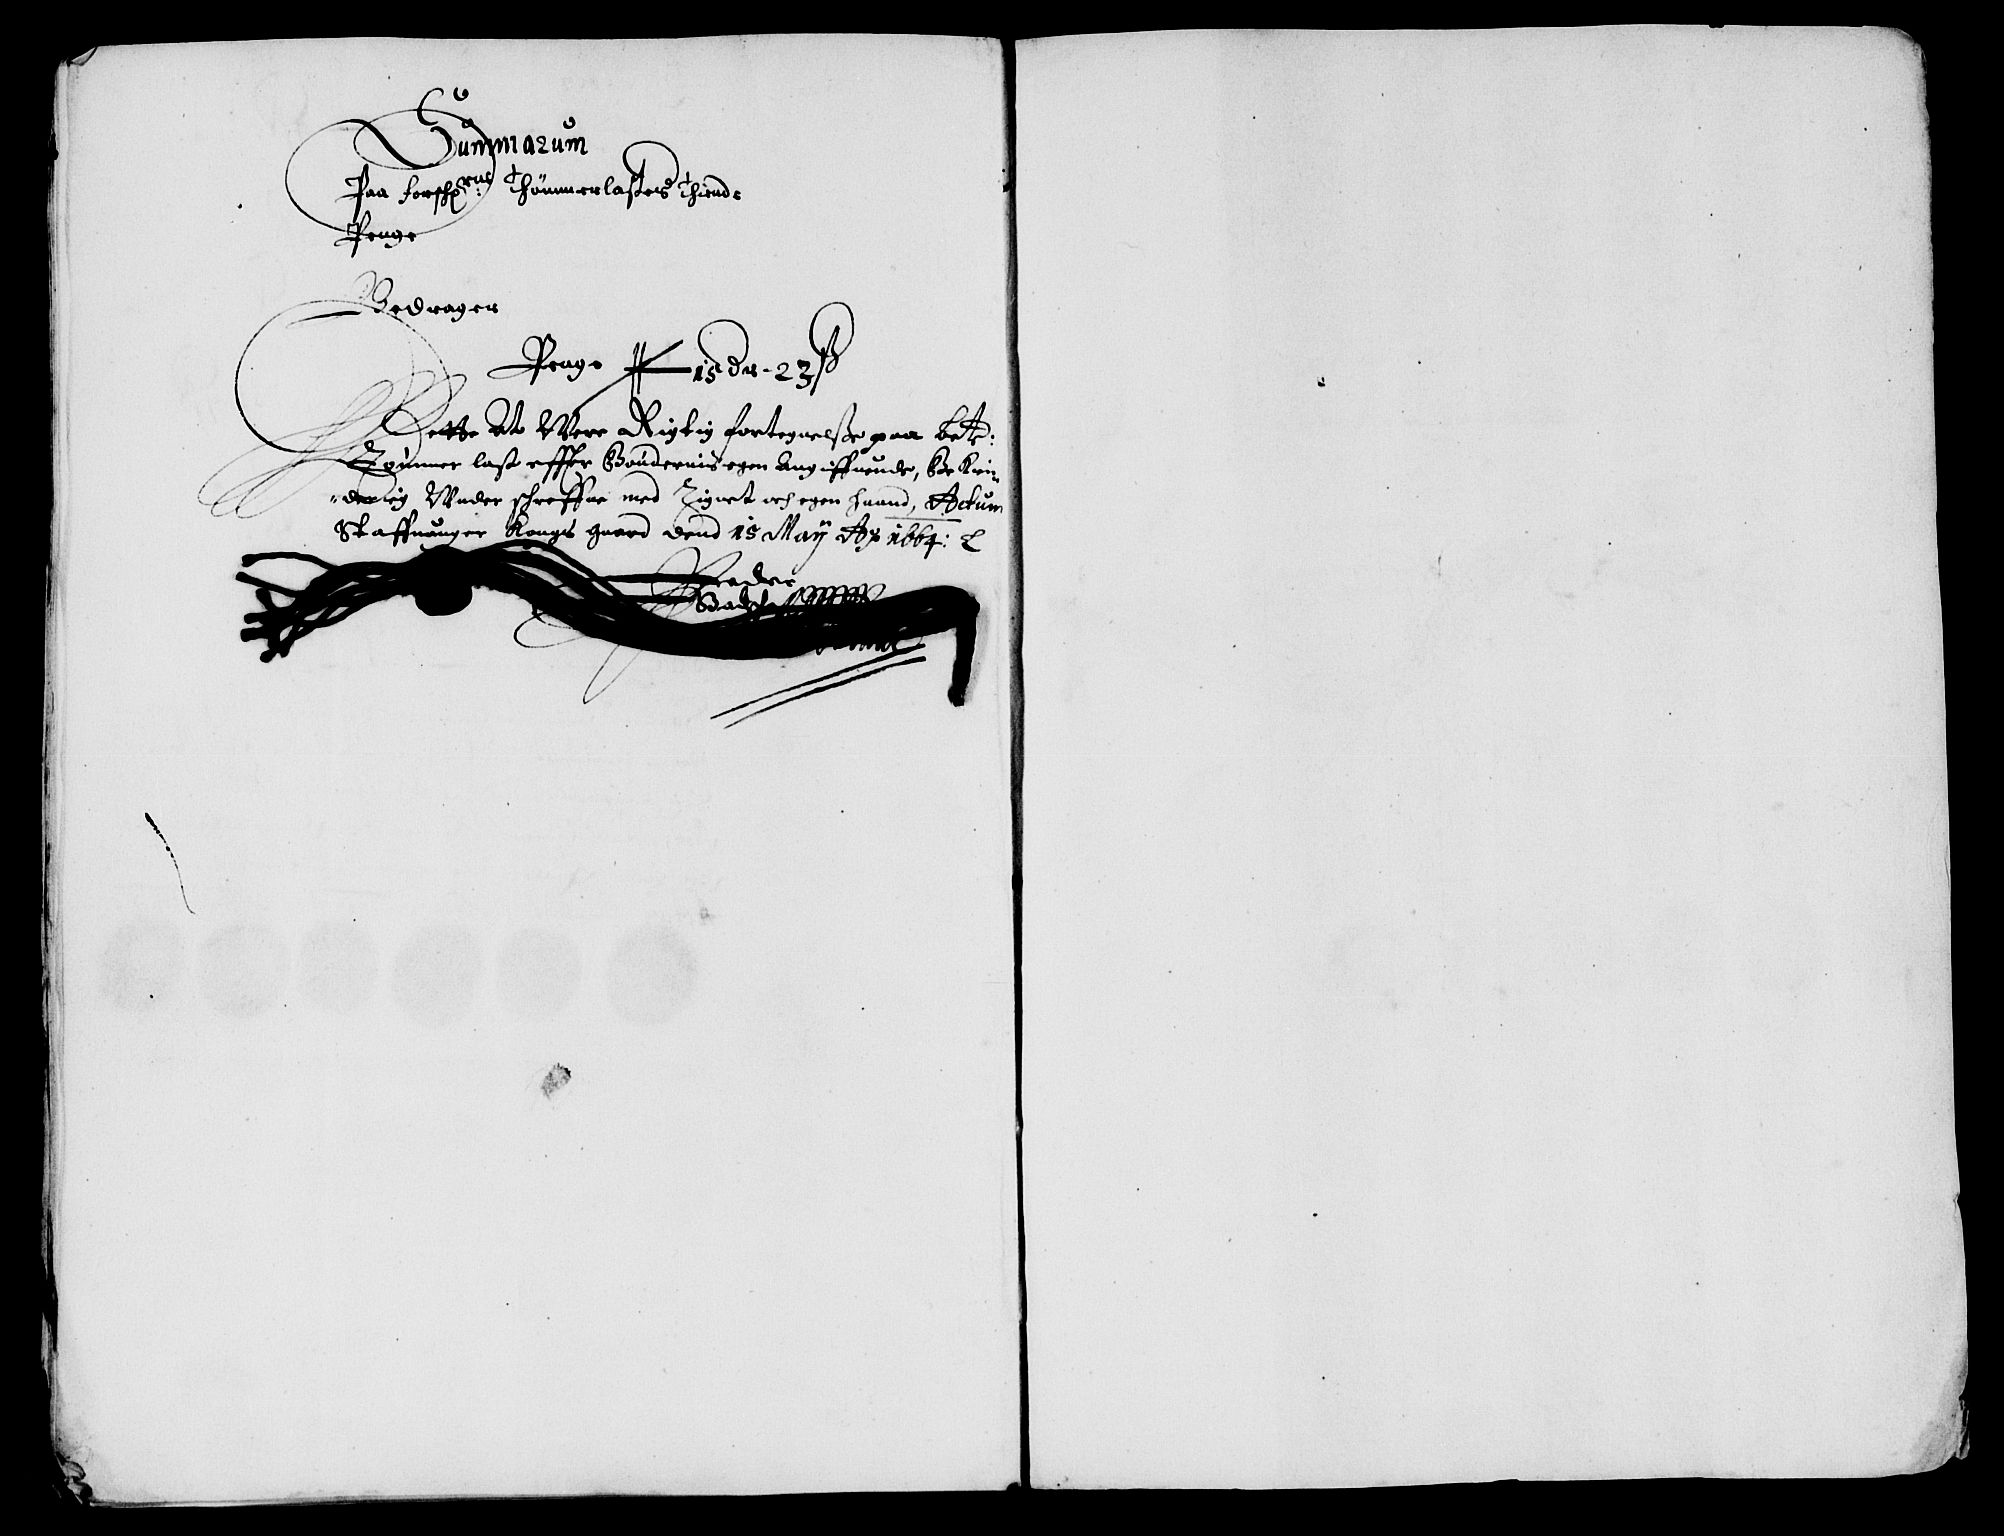 Summarum
Paa forschr:ne Thømmerlastes Thiende
Penge
Bedrager
Penge 15 dr - 23 ß
Dette At Were Rigtig fortegnelsße paa bete:
Tømmer last effter Bøndernis egen Angiffuende, Bekien-
derlig Vnder schreffne med Zignet och egen haand, Actum
Staffuanger Kongs gaard dend 15 Maÿ Ao 1664:
Peder